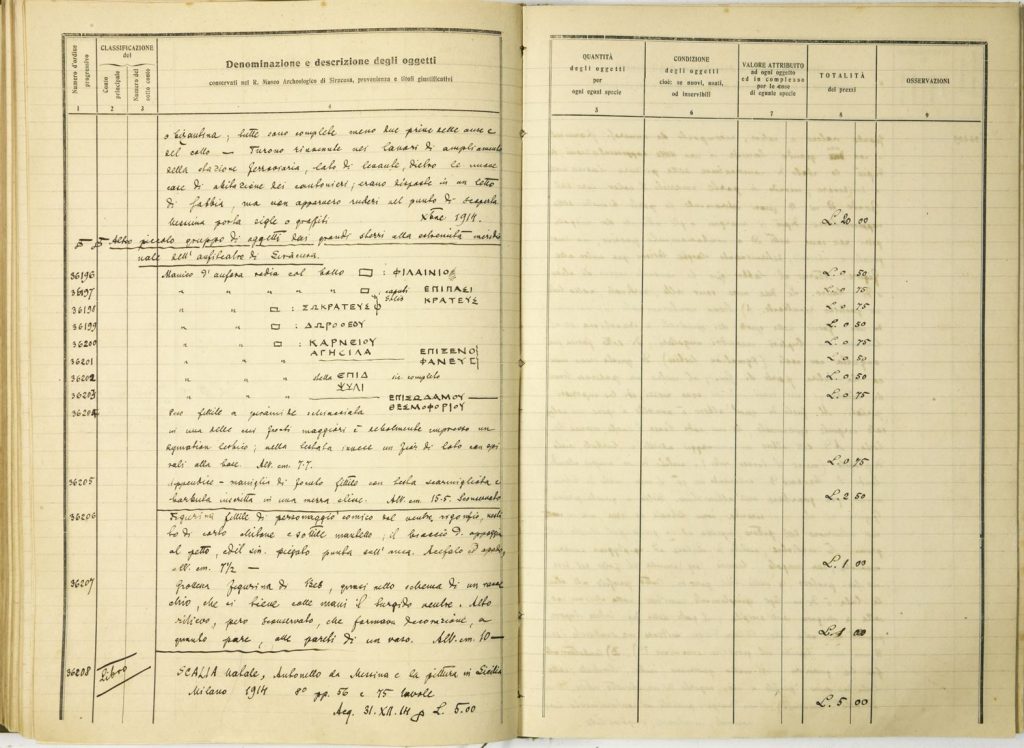 Numero d'ordine progressivo
CLASSIFICAZIONE del
Conto principale
Numero del sotto conto
Denominazione e descrizione degli oggetti
conservati nel R. Museo Archeologico di Siracusa, provenienza e titoli giustificativi
1 2 3 4
QUANTITÀ degli oggetti per ogni egual specie
CONDIZIONE degli oggetti cioè: se nuovi, usati, od inservibili
VALORE ATTRIBUITO ad ogni oggetto ed in complesso per le cose di eguale specie
TOTALITÀ dei prezzi
OSSERVAZIONI
5 6 7 8 9
o bizantina; tutte sono complete meno due prive delle anse e
del collo — Furono rinvenute nei lavori di ampliamento
della stazione ferroviaria, lato di levante, dietro le nuove
case di abitazione dei cantonieri; erano disposte in un letto
di sabbia, ma non apparvero ruderi nel punto di scoperta
nessuna porta sigle o graffiti. Xbre 1914. L. 20 00
Altro piccolo gruppo di oggetti dai grandi sterri alla estremità meridio
nale dell'anfiteatro di Siracusa.
36196 Manico d'anfora rodia col bollo : ΦΙΛΑΙΝΙΟ L. 0 50
36197 " " " " ΕΠΙΠΑΣΙ L. 0 75
ΚΡΑΤΕΥΣ
36198 " " : ΣΩΚΡΑΤΕΥΣ L. 0 75
36199 " " : ΔΩΡΟΘΕΟΥ L. 0 50
36200 " " : ΚΑΡΝΕΙΟΥ L. 0 75
ΑΓΗΣΙΛΑ ΕΠΙΞΕΝΟ
36201 " " ΦΑΝΕΥΣ L. 0 50
36202 " " " stella ΕΠΙΔ sic completo L. 0 50
ΨΥΛΙ
36203 " " " ΕΠΙΣΩΔΑΜΟΥ L. 0 75
ΘΕΣΜΟΦΟΡΙΟΥ
36204 Peso fittile a piramide schiacciata
in una delle cui fronti maggiori è debolmente impresso un
; nella testata invece un fior di loto con spi
rali alla base. Alt. cm. 7.7. L. 0 75
36205 Appendice - maniglia di fittile con testa scarmigliata e
barbuta inscritta in una mezza elisse. Alt. cm. 15.5. Sconservato L. 2 50
36206 Figurina fittile di personaggio comico dal ventre rigonfio, vesti
to di corto chitone e sottile mantello; il braccio D. appoggia
al petto, ed il sin. piegato punta sull'anca. Acefalo ed apodo,
alt. cm. 7½ — L. 1 00
36207 Grossena figurina di Bes, quasi nello schema di un ranoc
chio, che si tiene colle mani il turgido ventre. Alto
rilievo, però sconservato, che formava decorazione, a
quanto pare, alle pareti di un vaso. Alt. cm. 10 — L. 1 00
36208 Libro SCALIA Natale, Antonello da Messina e la pittura in Sicilia
Milano 1914 8° pp. 56 e 75 tavole
Acq. 31.XII.14 p L. 5.00 L. 5 00